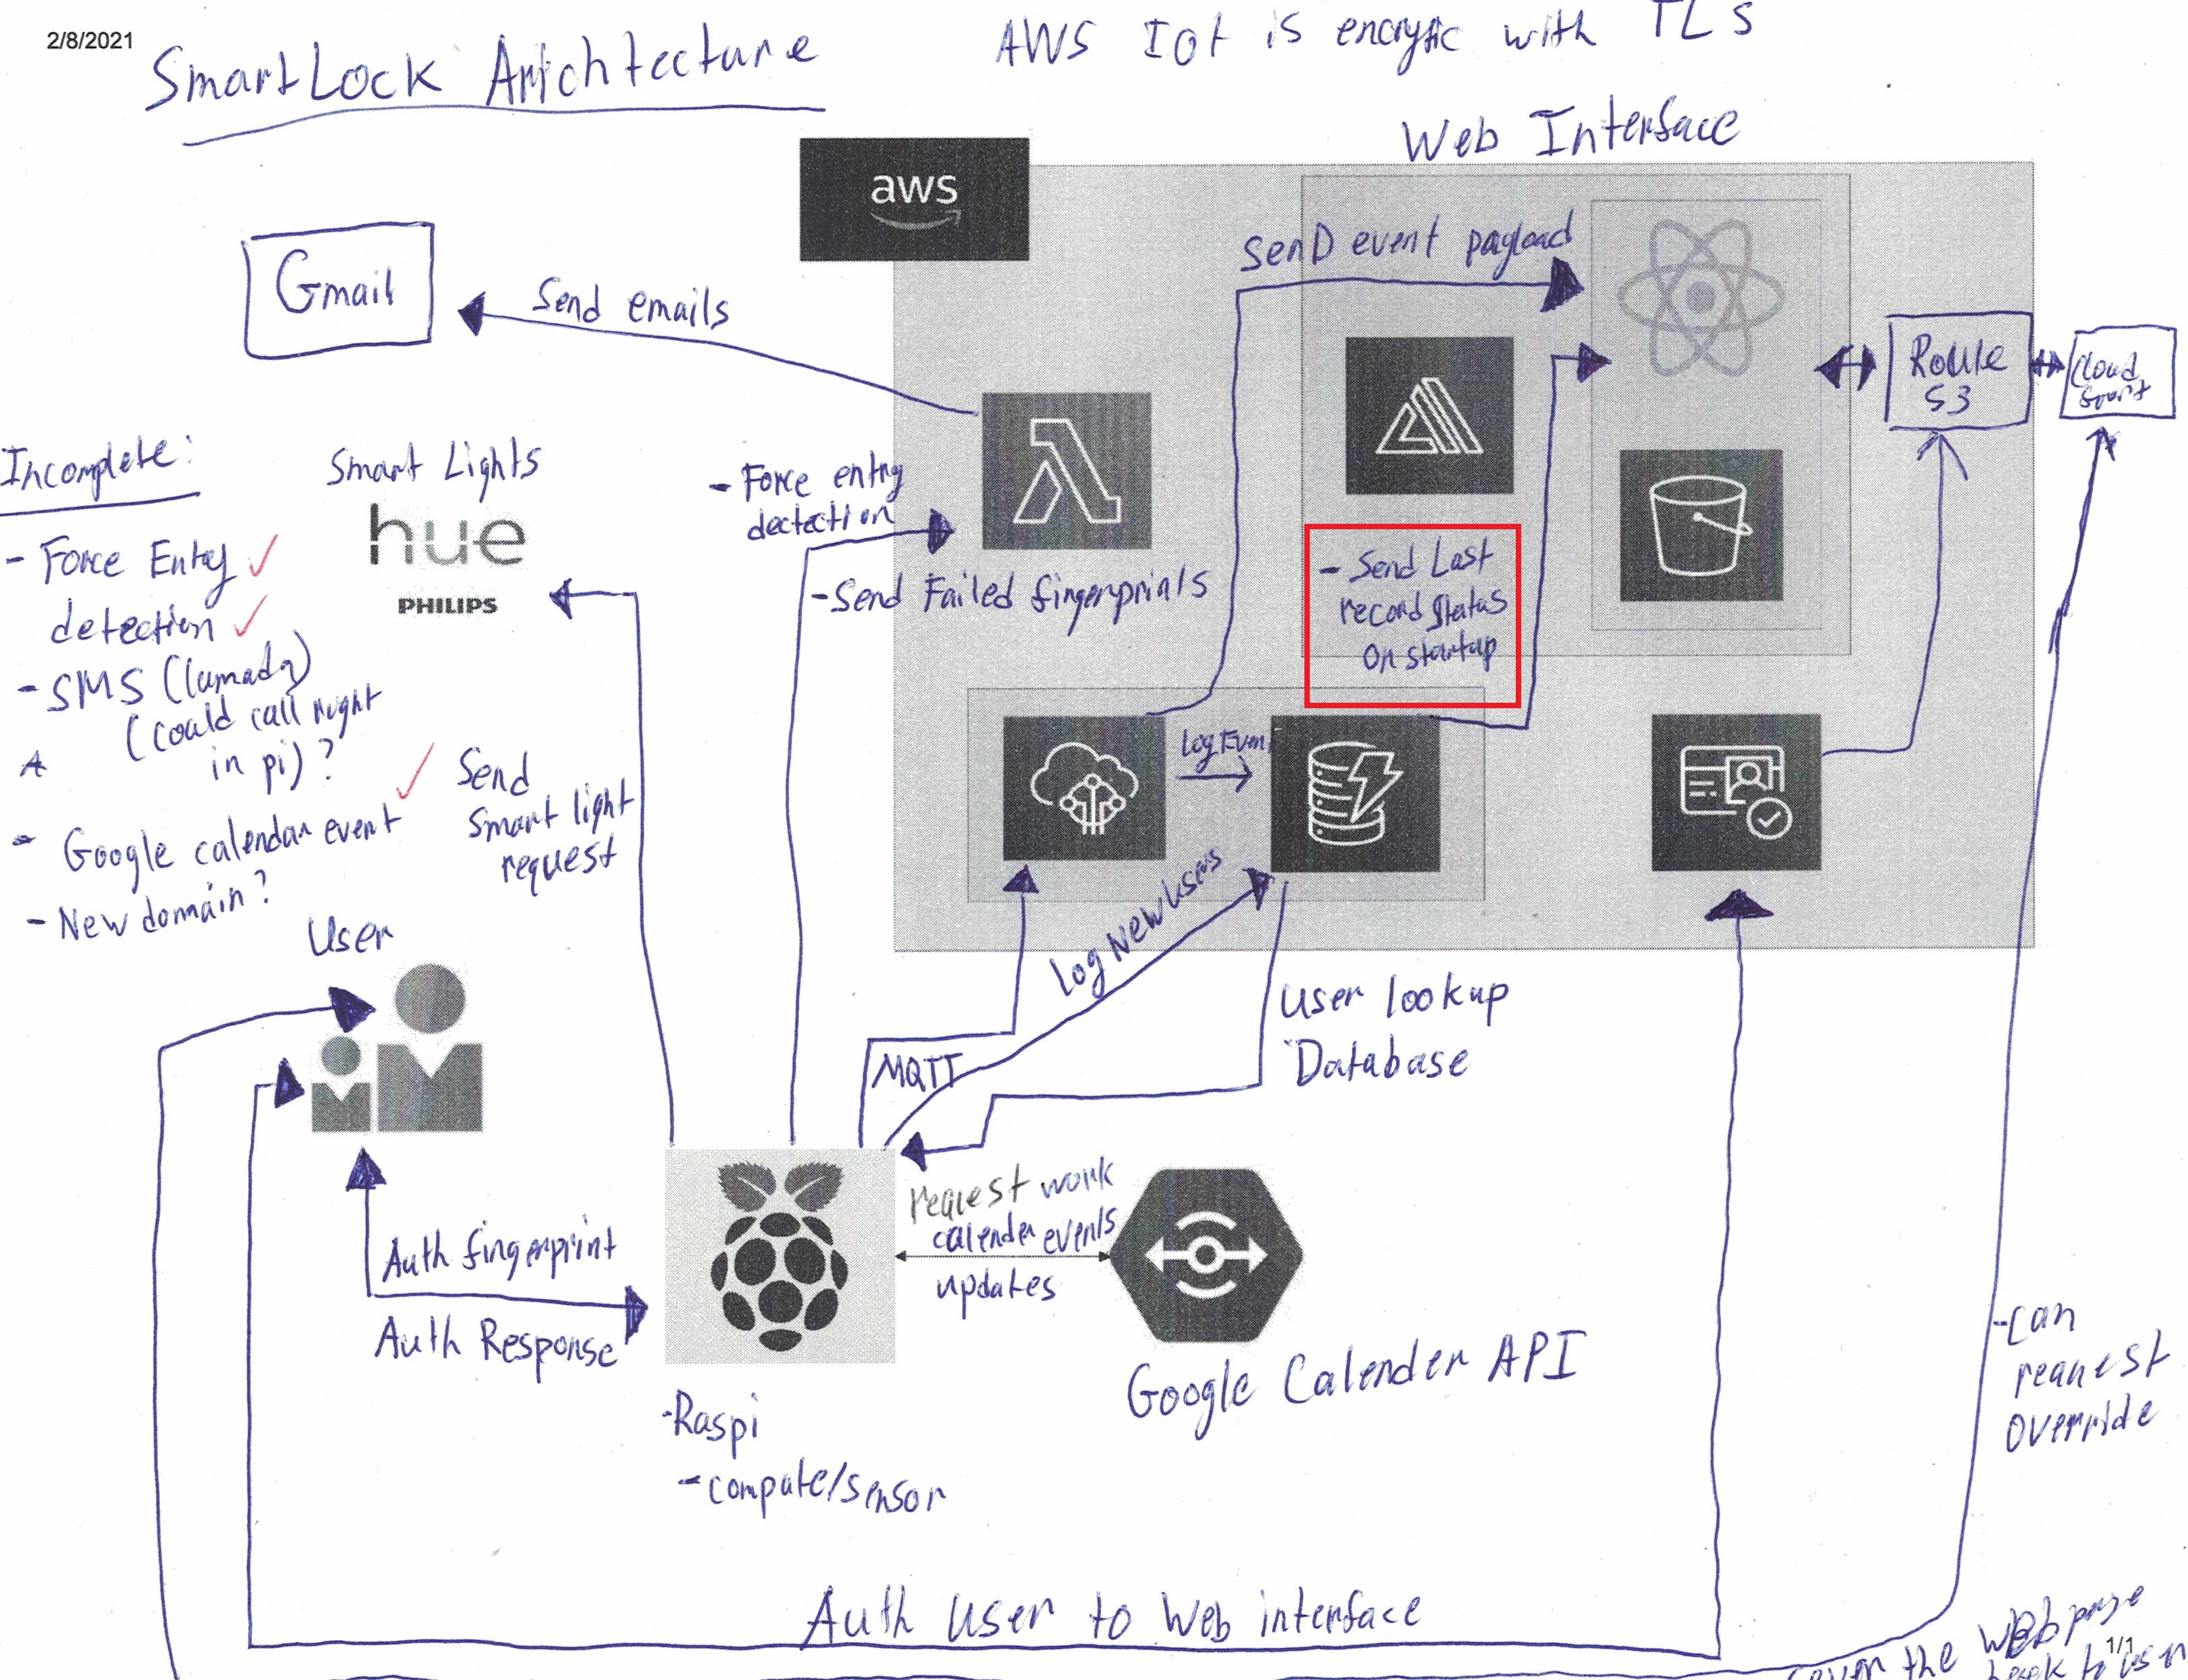 2/8/2021
SmartLock Arichtecture
AWS IoT is encryptic with TLS
Web Interface
aws
Gmail
Send emails
SenD event payload
Route
53
Cloud
front
Incomplete:
- Force Entry ✓
detection ✓
- SMS (lumada)
(could call right
in pi) ?
- Google calendar event ✓
- New domain?
Smart Lights
hue
PHILIPS
Send
Smart light
request
- Force entry
dectection
- Send Failed fingerprints
- Send Last
record Status
On startup
Log Even
Log New Users
MQTT
User lookup
Database
User
Auth fingerprint
Auth Response
request work
calender events
updates
Google Calender API
-Raspi
- compute/sensor
-can
request
override
Auth User to Web interface
the Webpage
1/1